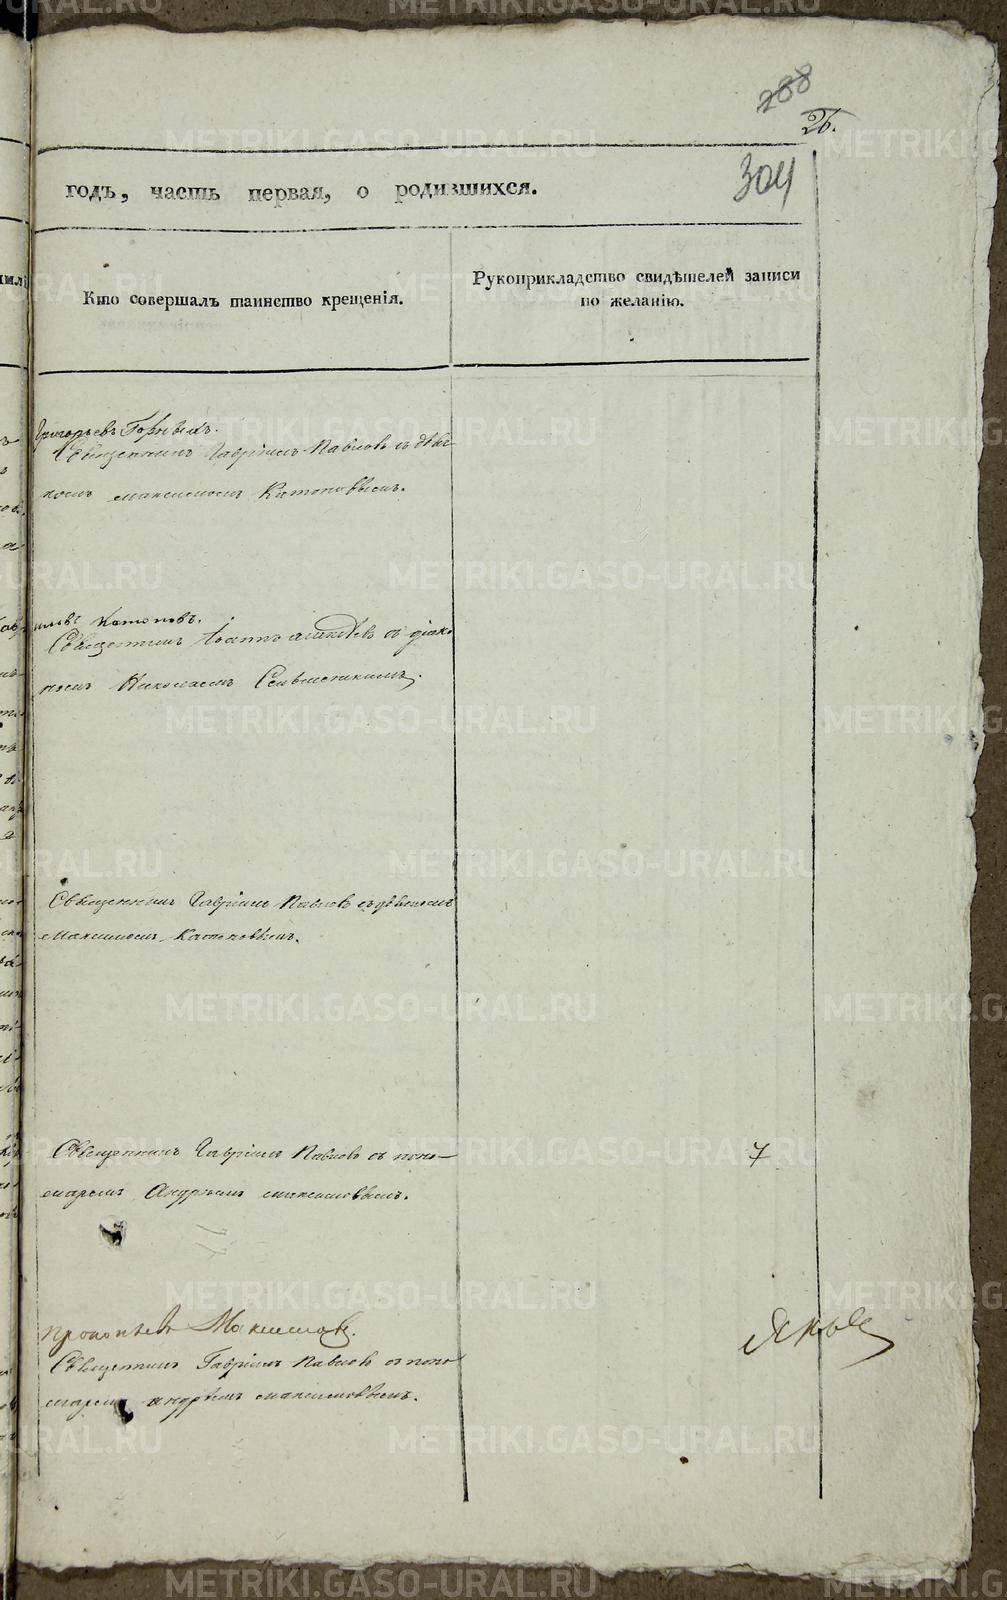 288
26.
304
годъ, часть первая, о родившихся.
Кто совершалъ таинство крещенія.
Рукоприкладство свидѣтелей записи
по желанію.
Григорьевъ Горныхъ.
Священникъ Гавріилъ Павловъ съ дьяко-
номъ Максимомъ Катоновымъ.
Катоновъ.
Священникъ Іоаннъ съ діако-
номъ Николаемъ
Священникъ Гавріилъ Павловъ съ дьякономъ
Максимомъ Катоновымъ.
Священникъ Гавріилъ Павловъ съ поно-
маремъ Андреемъ Максимовымъ.
7
Прокопьевъ Максимовъ.
Священникъ Гавріилъ Павловъ съ поно-
маремъ Андреемъ Максимовымъ.
METRIKI.GASO-URAL.RU